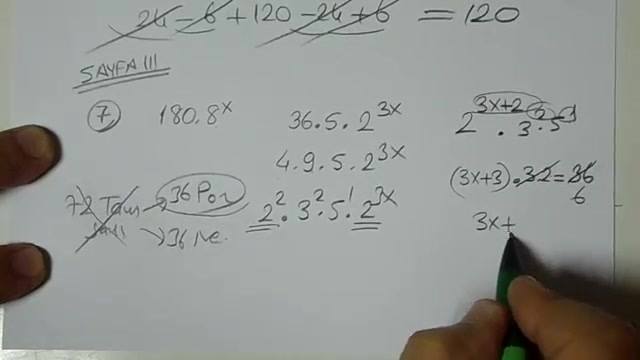 24 - 6 + 120 - 24 + 6 = 120
SAYFA 111
7 180.8^x 36.5.2^3x
4.9.5.2^3x
2^2.3^2.5^1.2^3x
72 Tam → 36 Poz
→ 36 Ne.
2^3x+2.3^2.5^1
(3x+3).3.2=36
6
3x+